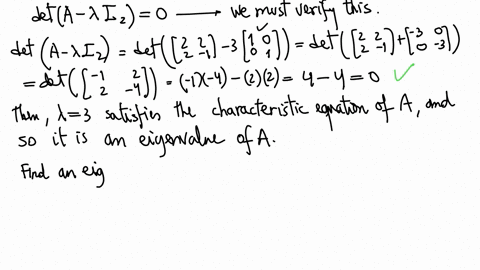 det(A-λI₂)=0 ⟶ we must verify this.
det(A-λI₂) = det([2 2; 2 -1] - 3[1 0; 0 1]) = det([2 2; 2 -1] + [-3 0; 0 -3])
= det([-1 2; 2 -4]) = (-1)(-4) - (2)(2) = 4 - 4 = 0 ✓
Then, λ=3 satisfies the characteristic equation of A, and
so it is an eigenvalue of A.
Find an eig